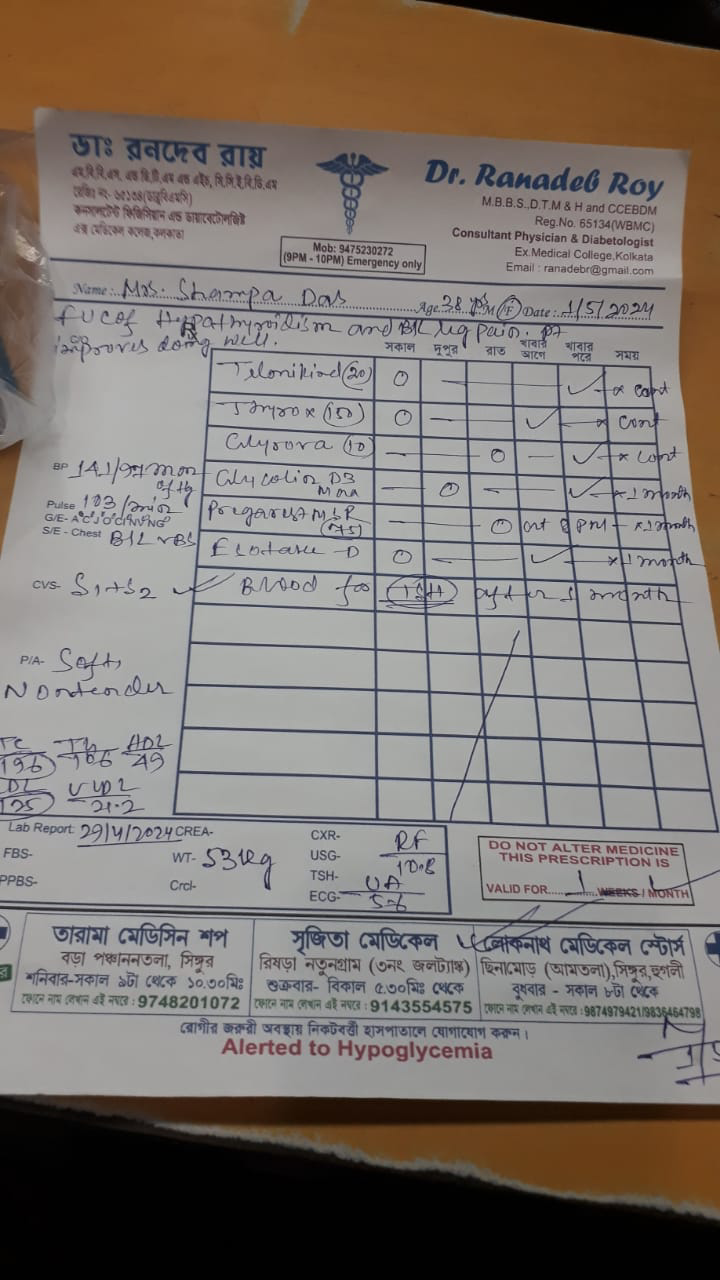 ডাঃ রনদেব রায়
কনসালটেন্ট ফিজিসিয়ান এন্ড ডায়াবেটোলজিষ্ট
এক্স মেডিকেল কলেজ, কলকাতা
Mob: 9475230272
(9PM - 10PM) Emergency only
Dr. Ranadeb Roy
M.B.B.S.,D.T.M & H and CCEBDM
Reg.No. 65134(WBMC)
Consultant Physician & Diabetologist
Ex.Medical College,Kolkata
Email : ranadebr@gmail.com
Name : Mrs. Shampa Das Age 38 yrs M/F Date : 1/5/2024
and B/L leg pain. pt
improves doing well.
সকাল দুপুর রাত খাবার আগে খাবার পরে সময়
Telmikind (20) O — — ✓ x cont
Thyrox (150) O — ✓ x cont
(10) — — O — ✓ x cont
D3 Max — O — ✓ x 1 month
M SR (75) — — O at 8 PM — x 1 month
D O — — ✓ x 1 month
Blood for TSH after 1 month
BP 141/97 mm of Hg
Pulse 103/min
G/E-
S/E - Chest B/L VBS
CVS- S1+S2
P/A- Soft,
Nontender
TC 196 TG 106 HDL 49
LDL 125 VLDL 21.2
Lab Report: 29/4/2024 CREA-
FBS- WT- 53 kg
PPBS- Crcl-
CXR- RF
USG- 10.8
TSH- UA
ECG- 5.6
DO NOT ALTER MEDICINE
THIS PRESCRIPTION IS
VALID FOR.....1.....WEEKS / MONTH
তারামা মেডিসিন শপ
বড়া পঞ্চাননতলা, সিঙ্গুর
শনিবার-সকাল ৯টা থেকে ১০.৩০মিঃ
ফোনে নাম লেখান এই নম্বরে : 9748201072
সৃজিতা মেডিকেল
রিষড়া নতুনগ্রাম (৩নং জলট্যাঙ্ক)
শুক্রবার- বিকাল ৫.৩০মিঃ থেকে
ফোনে নাম লেখান এই নম্বরে : 9143554575
লোকনাথ মেডিকেল স্টোর্স
ছিনামোড় (আমতলা),সিঙ্গুর,হুগলী
বুধবার - সকাল ৮টা থেকে
ফোনে নাম লেখান এই নম্বরে :9874979421/9836464798
রোগীর জরুরী অবস্থায় নিকটবর্ত্তী হাসপাতালে যোগাযোগ করুন।
Alerted to Hypoglycemia